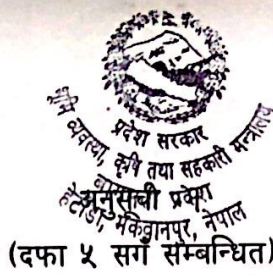 प्रदेश सरकार
भूमि व्यवस्था, कृषि तथा सहकारी मन्त्रालय
अनुसूची
प्रदेश
हेटौंडा, मकवानपुर, नेपाल
(दफा ५ सगँ सम्बन्धित)